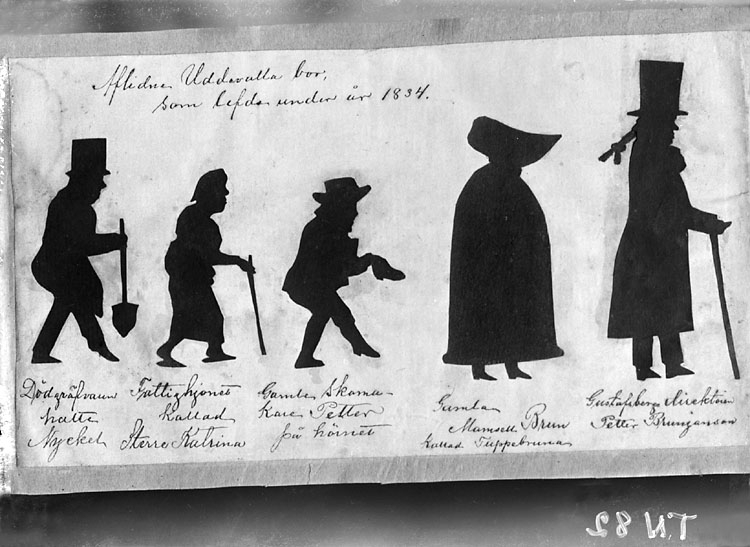 Aflidne Uddevalla bor,
som lefde under år 1834.
Dödgräfvaren
Matts
Nyckel
Fattighjonet
kallad
Sterre Katrina
Gamle Skoma-
kare Petter
på hörnet
Gamla
Mamsell Brun
kallad Tuppebruna
Gustafsbergs Direktören
Petter Brunjanson